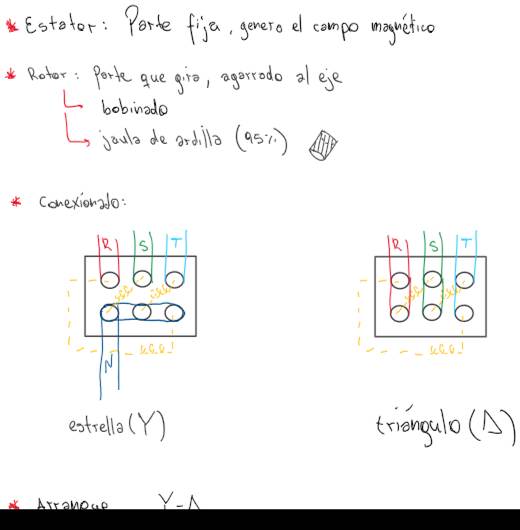 * Estator: Parte fija, genero el campo magnético
* Rotor: Parte que gira, agarrado al eje
bobinado
jaula de ardilla (95%)
* Conexionado:
R S T
R S T
N
estrella (Y)
triángulo (Δ)
* Arranque Y-Δ